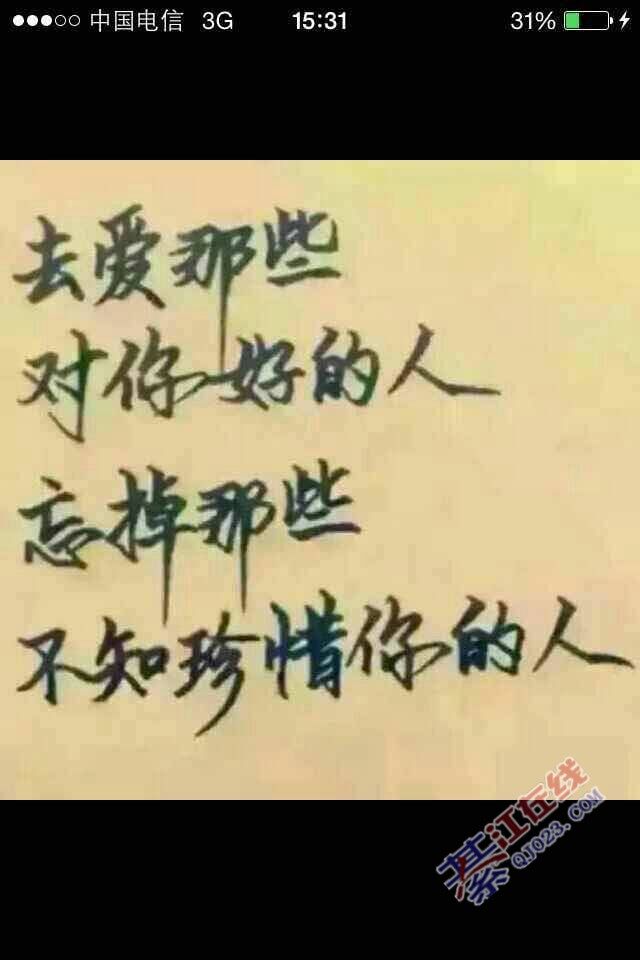 中国电信 3G 15:31 31%
去爱那些
对你好的人
忘掉那些
不知珍惜你的人
綦江在线
QJ023.COM